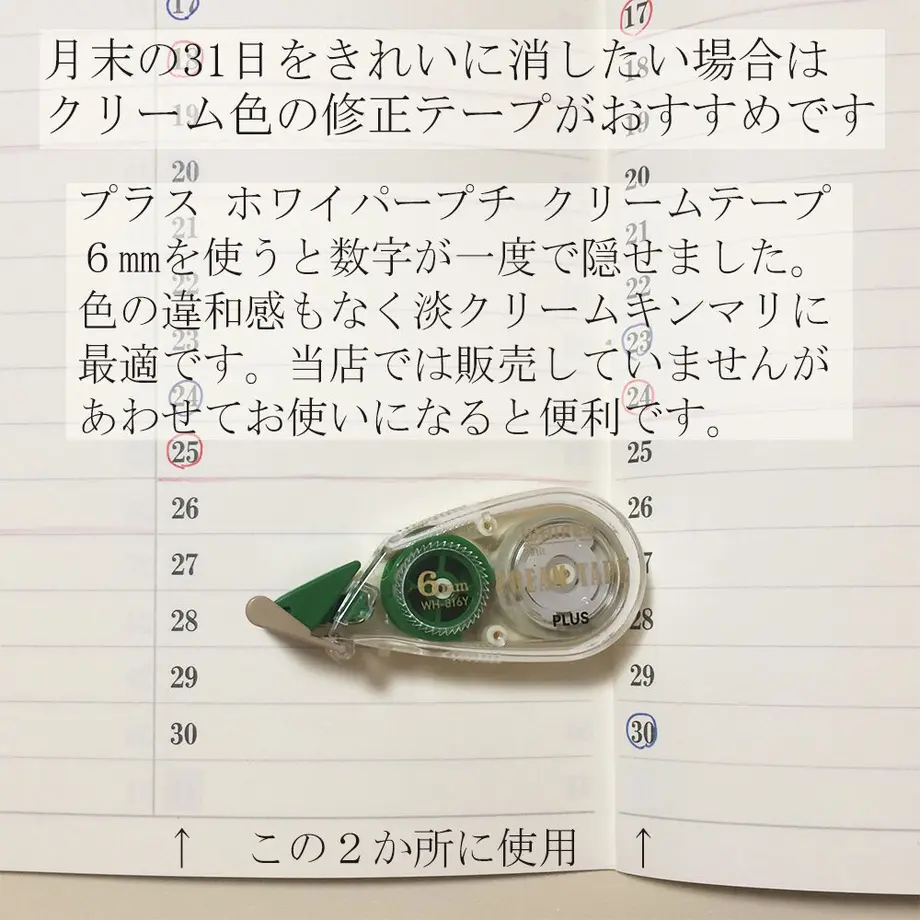 17 17
月末の31日をきれいに消したい場合は
18 18
クリーム色の修正テープがおすすめです
19 19
20 20
プラス ホワイパープチ クリームテープ
21 21
6㎜を使うと数字が一度で隠せました。
22 22
色の違和感もなく淡クリームキンマリに
23 23
最適です。当店では販売していませんが
24 24
あわせてお使いになると便利です。
25 25
26 26
27 27
6mm
WH-816Y
CREAM TAPE
PLUS
28 28
29 29
30 30
↑ この2か所に使用 ↑